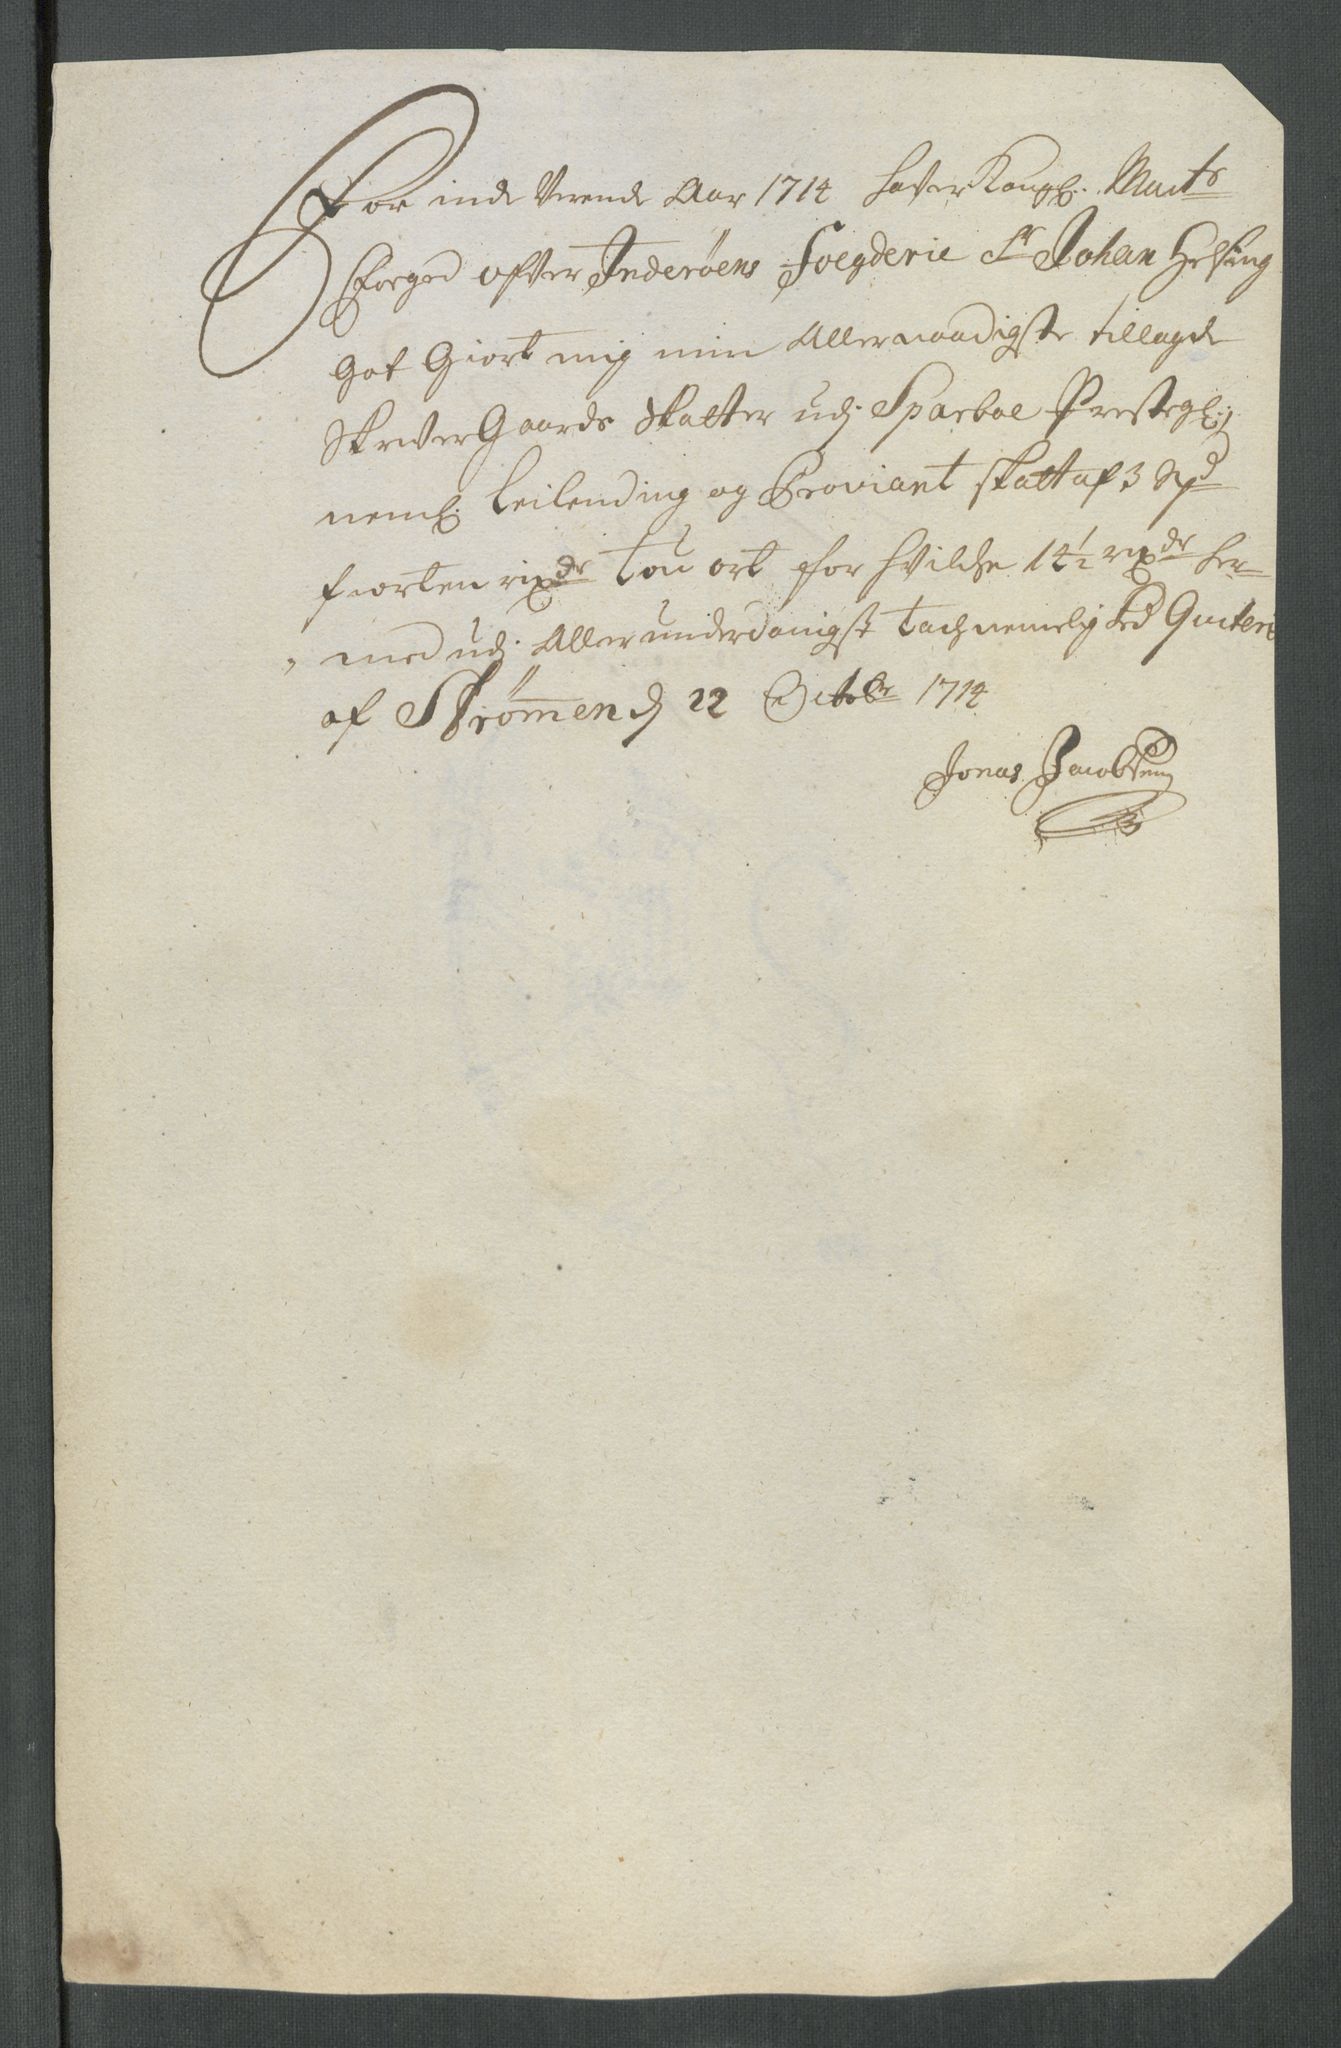 For inde Verende Aar 1714 hafver Kongl: Maits
Foeged ofver Inderöens Foegderie Sr Johan Helsing
Got Giort mig min Allernaadigste tillagde
SkriverGaards Skatter udj Sparboe Prestegl:
neml: Leilending og Proviant skatt af 3 Spd
fiorten rixdr tou ort for hvilche 14½ rixdr her-
med udj Allerunderdanigst tachnemelighed Qviteris
af Strömen d 22 Octobr 1714
Jonas Jacobsen